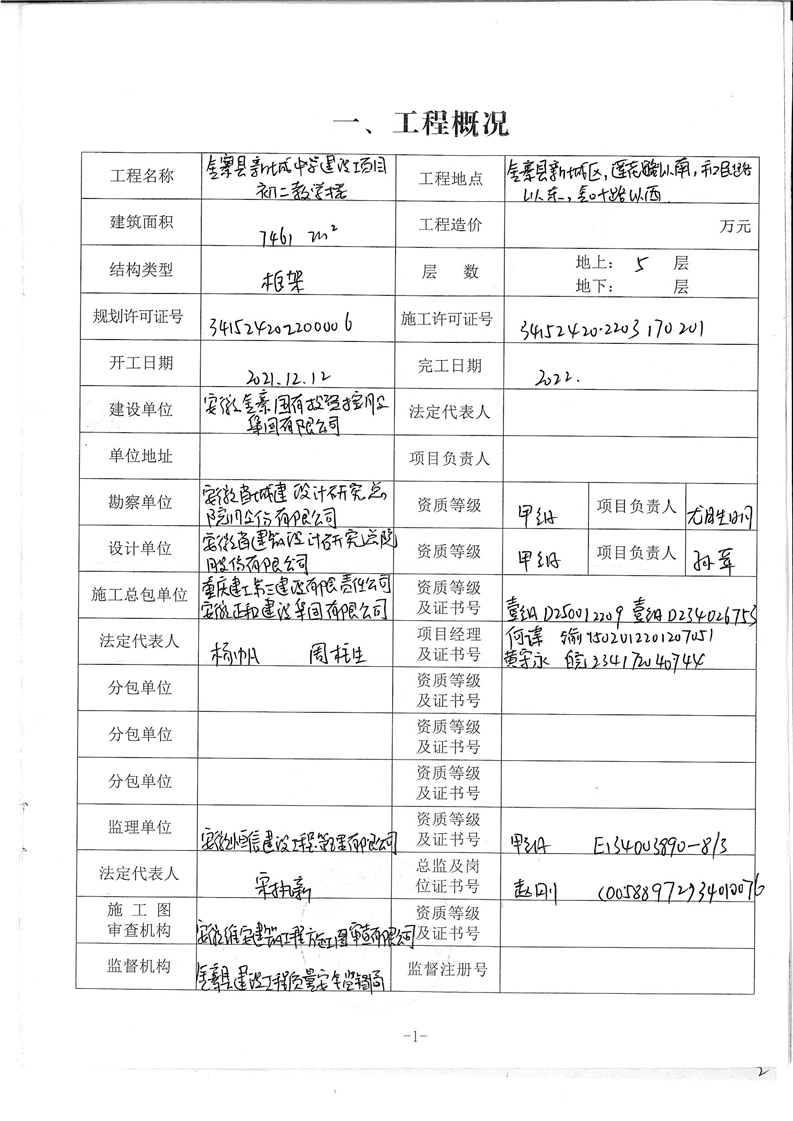 一、工程概况
工程名称 金寨县新城中学建设项目 工程地点 金寨县新城区,莲花路以南,
初二教学楼 以东,金叶路以西
建筑面积 7461 m² 工程造价 万元
结构类型 框架 层 数 地上: 5 层
地下: 层
规划许可证号 341524202200006 施工许可证号 34152420·2203170201
开工日期 2021.12.12 完工日期 2022.
建设单位 安徽金寨国有投资控股 法定代表人
集团有限公司
单位地址 项目负责人
勘察单位 安徽省城建设计研究总 资质等级 甲级 项目负责人 尤胜
院股份有限公司
设计单位 安徽省建筑设计研究总院 资质等级 甲级 项目负责人 孙苹
股份有限公司
施工总包单位 重庆建工第三建设有限责任公司 资质等级
安徽正和建设集团有限公司 及证书号 壹级D250012209 壹级D234026753
法定代表人 杨帆 周柱生 项目经理 何谭 渝1502012201207051
及证书号 黄宇永 皖234172040744
分包单位 资质等级
及证书号
分包单位 资质等级
及证书号
分包单位 资质等级
及证书号
监理单位 安徽恒信建设工程管理有限公司 资质等级
及证书号 甲级 E134003890-8/3
法定代表人 宋执新 总监及岗
位证书号 赵刚 (00588972934010076
施 工 图 资质等级
审查机构 安徽维安建筑工程施工图审查有限公司 及证书号
监督机构 金寨县建设工程质量安全监督局 监督注册号
-1-
2